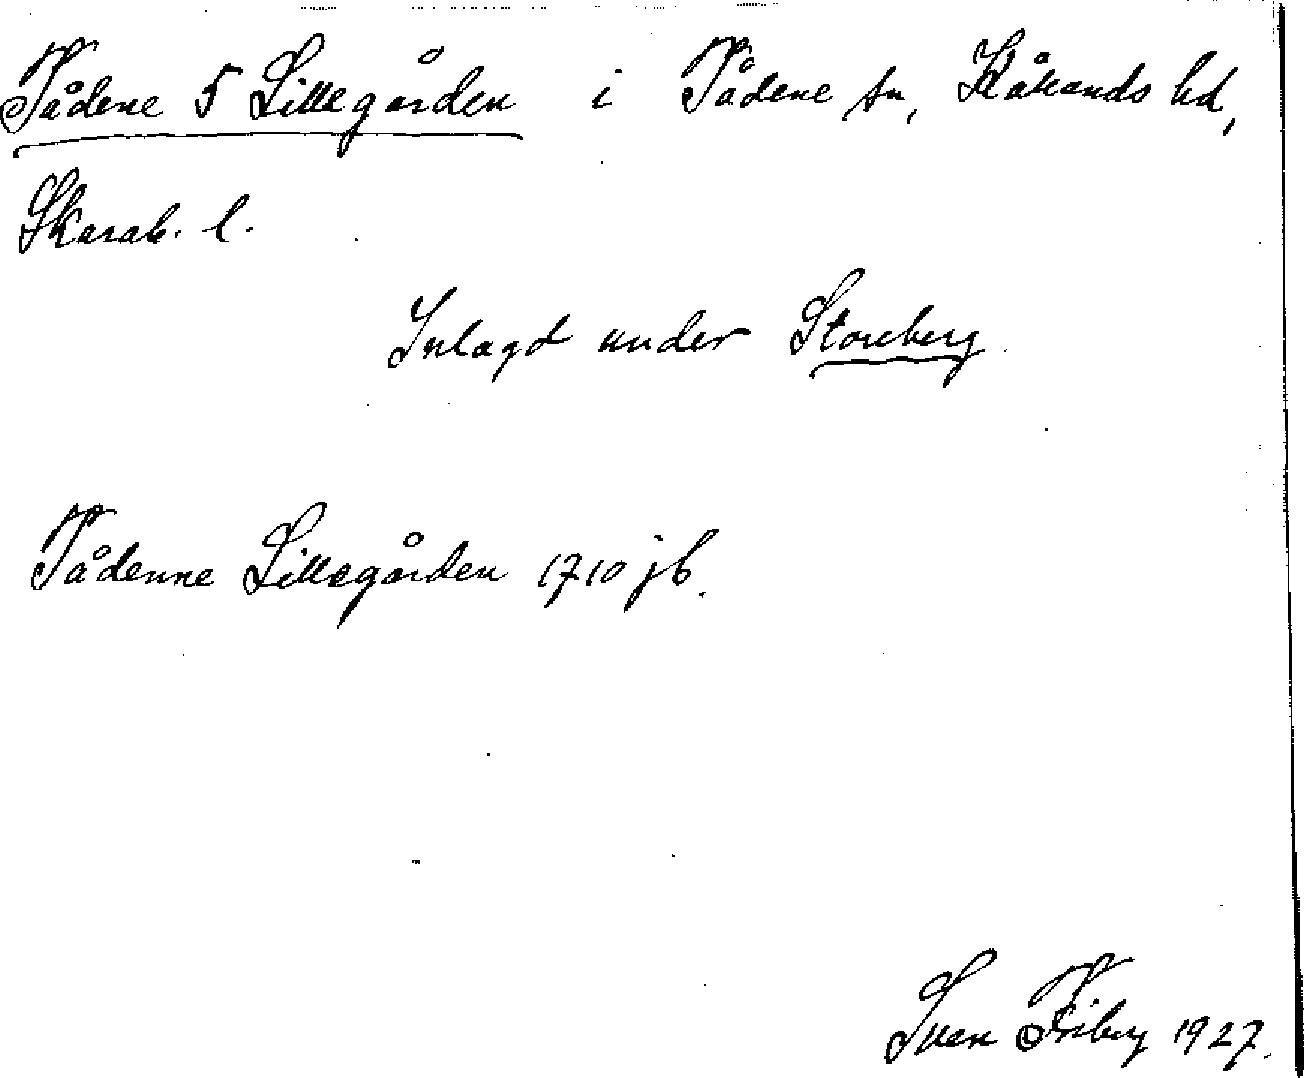 Tådene 5 Lillegården i Tådene sn, Kåkands hd,
Skarab. l.
Inlagd under Storeberg.
Tådenne Lillegården 1710 jb.
Sven Friberg 1927.